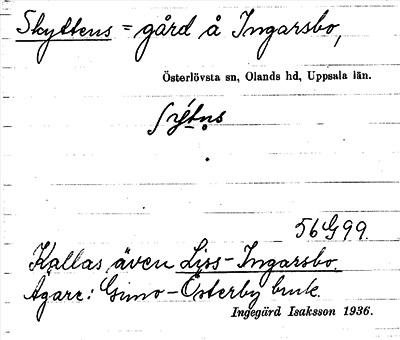 Skyttens = gård å Ingarsbo,
Österlövsta sn, Olands hd, Uppsala län.
56G99.
Kallas även Liss-Ingarsbo.
Ägare: Gimo-Österby bruk.
Ingegärd Isaksson 1936.